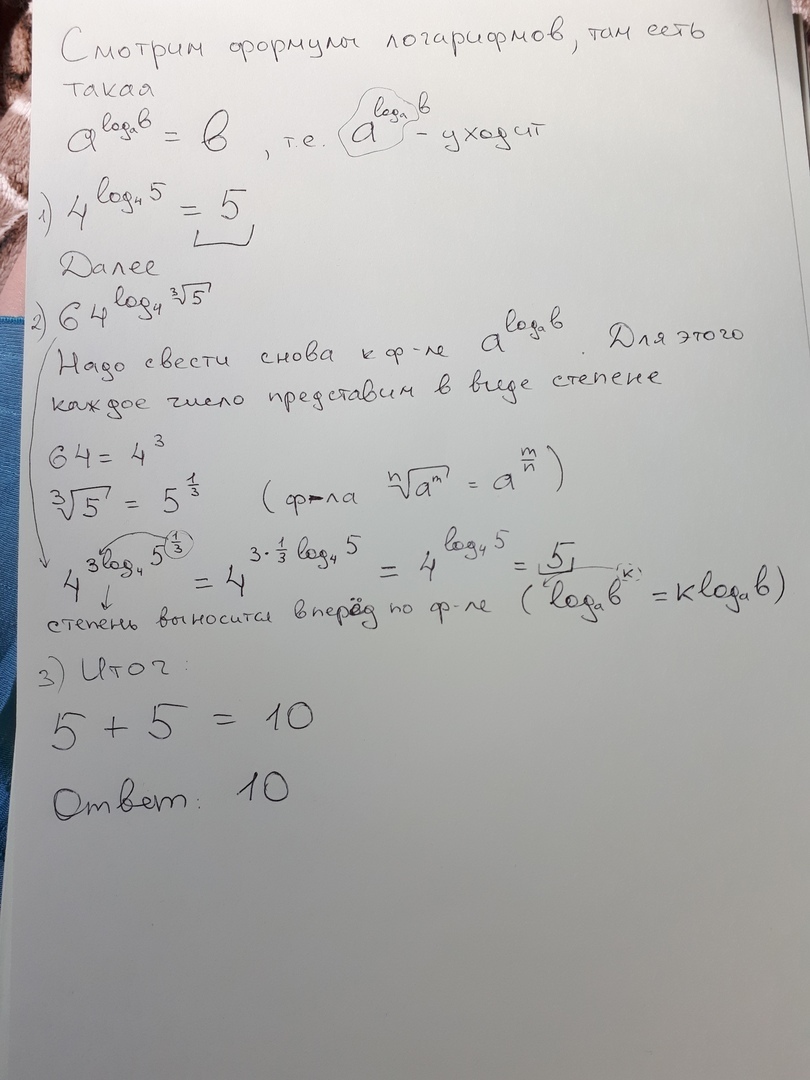 Смотрим формулы логарифмов, там есть
такая
a^{log_a b} = b, т.е. a^{log_a b} - уходит
1) 4^{log_4 5} = 5
Далее
2) 64^{log_4 ∛5}
Надо свести снова к ф-ле a^{log_a b}. Для этого
каждое число представим в виде степене
64 = 4^3
∛5 = 5^{1/3} (ф-ла ⁿ√a^m = a^{m/n})
4^{3log_4 5^{1/3}} = 4^{3·1/3 log_4 5} = 4^{log_4 5} = 5
степень выносится вперёд по ф-ле (log_a b^k = k log_a b)
3) Итог:
5 + 5 = 10
Ответ: 10